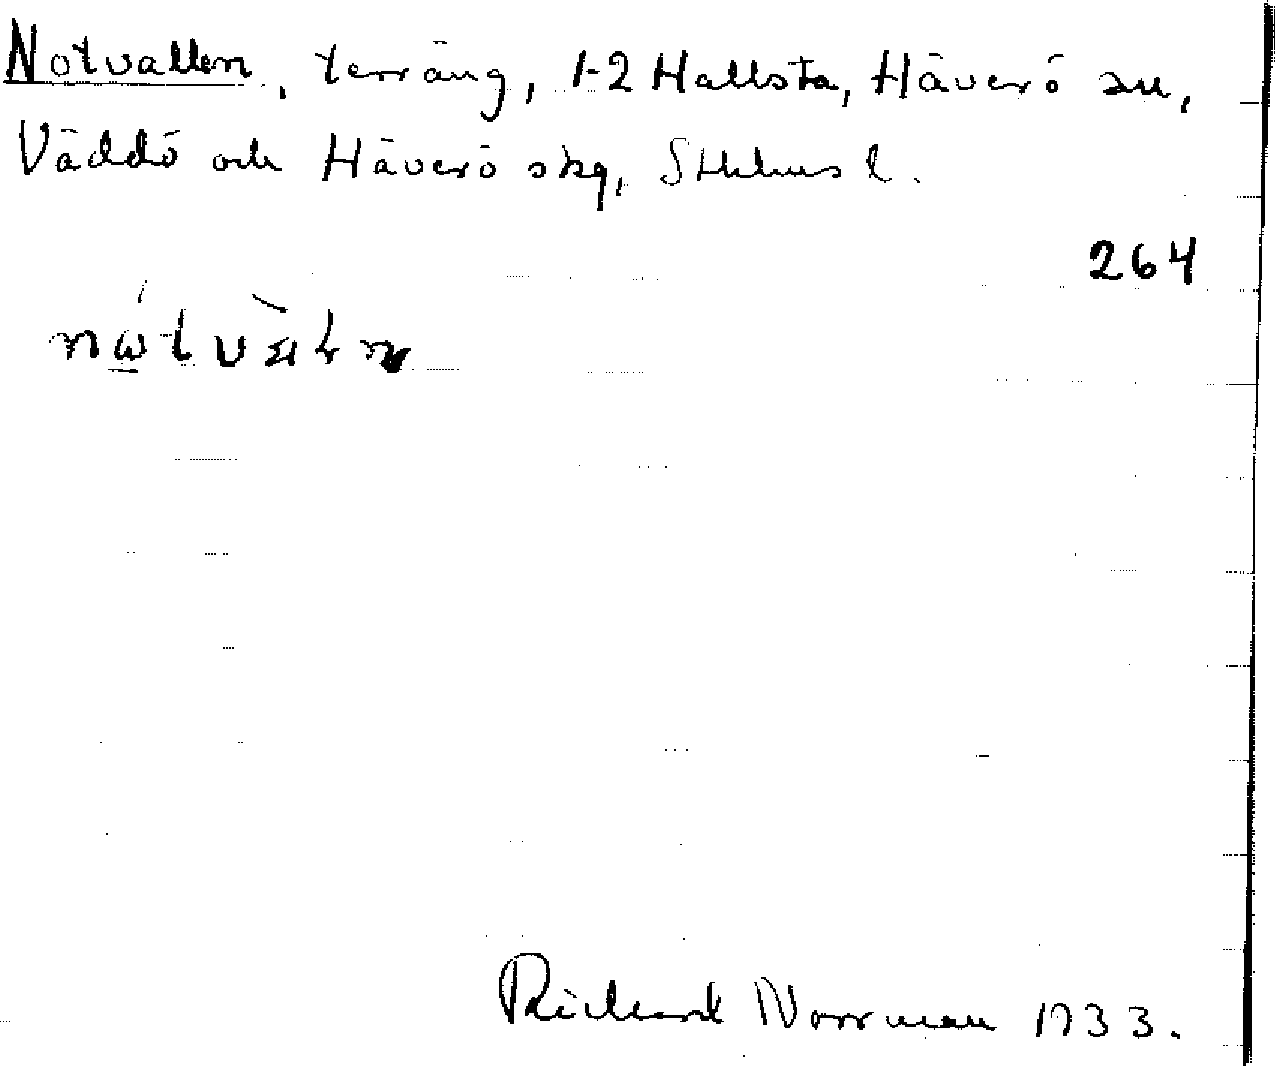 Notvallen, terräng, 1-2 Hallsta, Häverö sn,
Väddö och Häverö skg, Sthlms l.
264
Richard Norrman 1933.